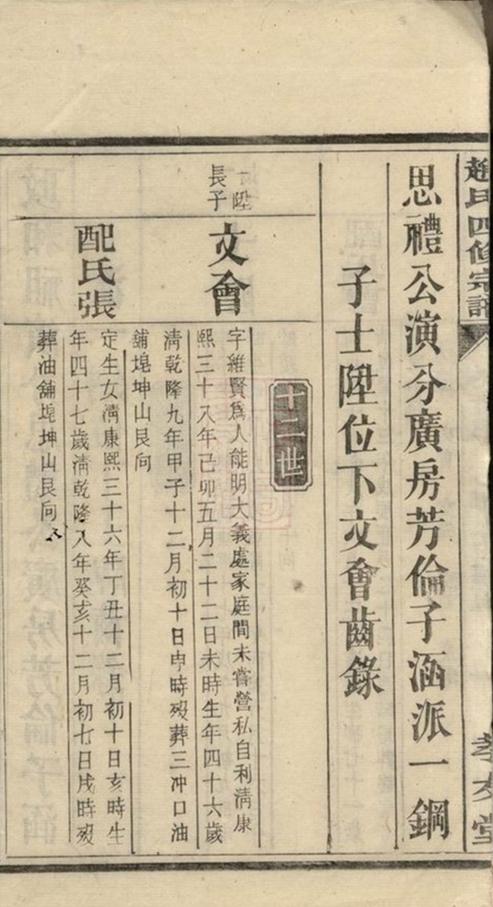 趙氏四修宗譜
孝友堂
思禮公演分廣房芳倫子涵派一鋼
子士陞位下文會齒錄
十二世
一陞
長子
文會
字維賢爲人能明大義處家庭間未嘗營私自利清康
熙三十八年己卯五月二十二日未時生年四十六歲
清乾隆九年甲子十二月初十日申時歿葬三冲口油
舖塊坤山艮向
配氏張
定生女清康熙三十六年丁丑十二月初十日亥時生
年四十七歲清乾隆八年癸亥十二月初七日戌時歿
葬油舖塊坤山艮向